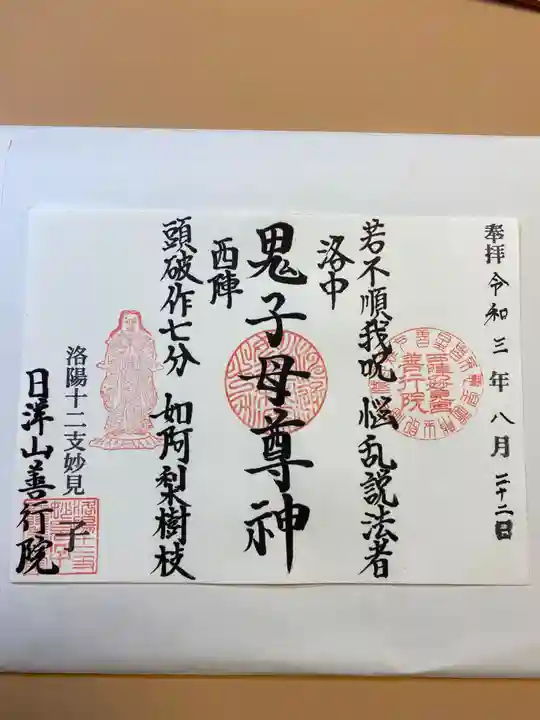 奉拝 令和三年八月二十二日
若不順我呪 悩乱説法者
洛中
鬼子母尊神
西陣
頭破作七分 如阿梨樹枝
洛陽十二支妙見 子
日洋山善行院
善行院